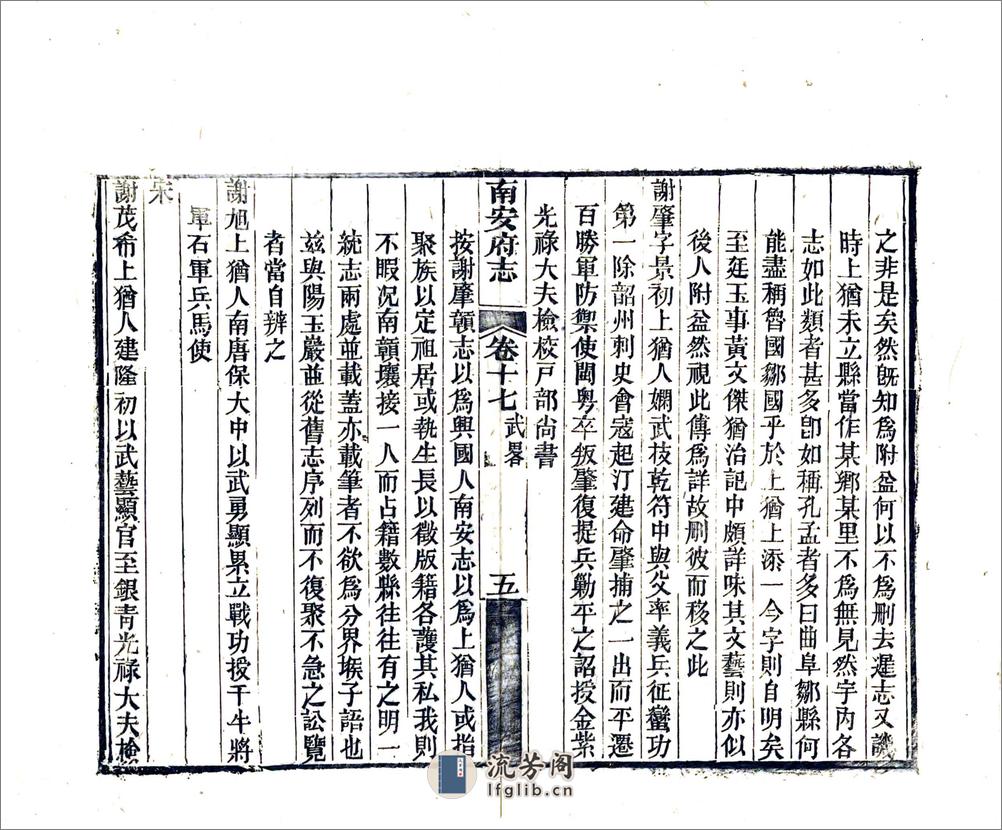 之非是矣然旣知爲附益何以不爲刪去遲志又譏
時上猶未立縣當作某鄉某里不爲無見然宇內各
志如此類者甚多卽如稱孔孟者多曰曲阜鄒縣何
能盡稱魯國鄒國乎於上猶上添一今字則自明矣
至廷玉事黃文傑猶治記中頗詳味其文藝則亦似
後人附益然視此傳爲詳故刪彼而移之此
謝肇字景初上猶人嫻武枝乾符中與父率義兵征蠻功
第一除韶州刺史會寇起汀建命肇捕之一出而平遷
百勝軍防禦使閩粵卒叛肇復提兵勦平之詔授金紫
光祿大夫檢校戸部尚書
南安府志 卷十七 武畧 五
按謝肇贛志以爲興國人南安志以爲上猶人或指
聚族以定祖居或執生長以徵版籍各護其私我則
不暇況南贛壤接一人而占籍數縣往往有之明一
統志兩處並載蓋亦載筆者不欲爲分界堠子語也
兹與陽玉嚴並從舊志序列而不復聚不急之訟覽
者當自辨之
謝旭上猶人南唐保大中以武勇顯累立戰功授千牛將
軍石軍兵馬使
宋
謝茂希上猶人建隆初以武藝顯官至銀青光祿大夫檢
流芳阁
lfglib.cn